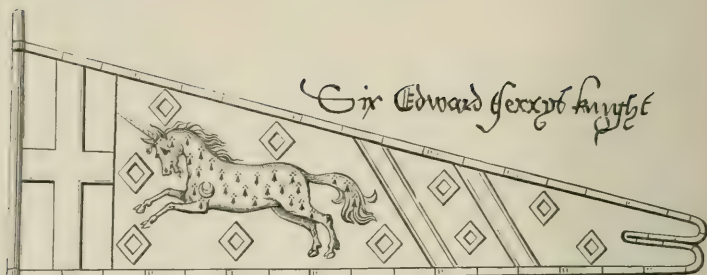 Sir Edward fferrys knyght